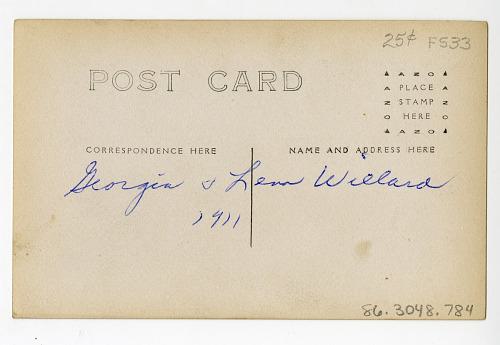 25¢ F533
POST CARD
AZO
PLACE
STAMP
HERE
AZO
CORRESPONDENCE HERE
NAME AND ADDRESS HERE
Georgia & Lena Willard
1911
86.3048.784